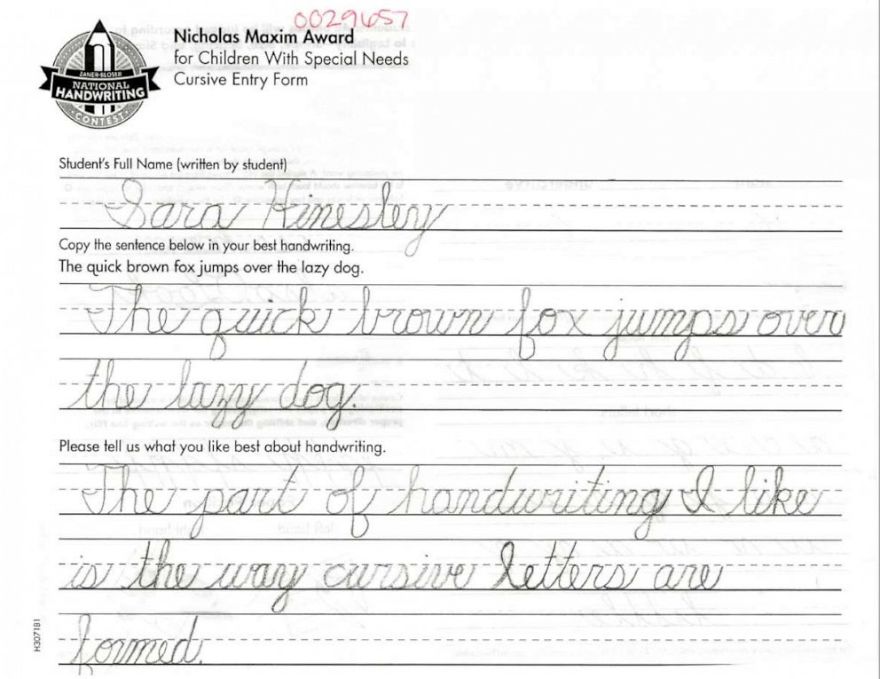 0029657
Nicholas Maxim Award
for Children With Special Needs
Cursive Entry Form
ZANER-BLOSER
NATIONAL
HANDWRITING
CONTEST
Student's Full Name (written by student)
Sara Hinesley
Copy the sentence below in your best handwriting.
The quick brown fox jumps over the lazy dog.
The quick brown fox jumps over
the lazy dog.
Please tell us what you like best about handwriting.
The part of handwriting I like
is the way cursive letters are
formed.
H307181